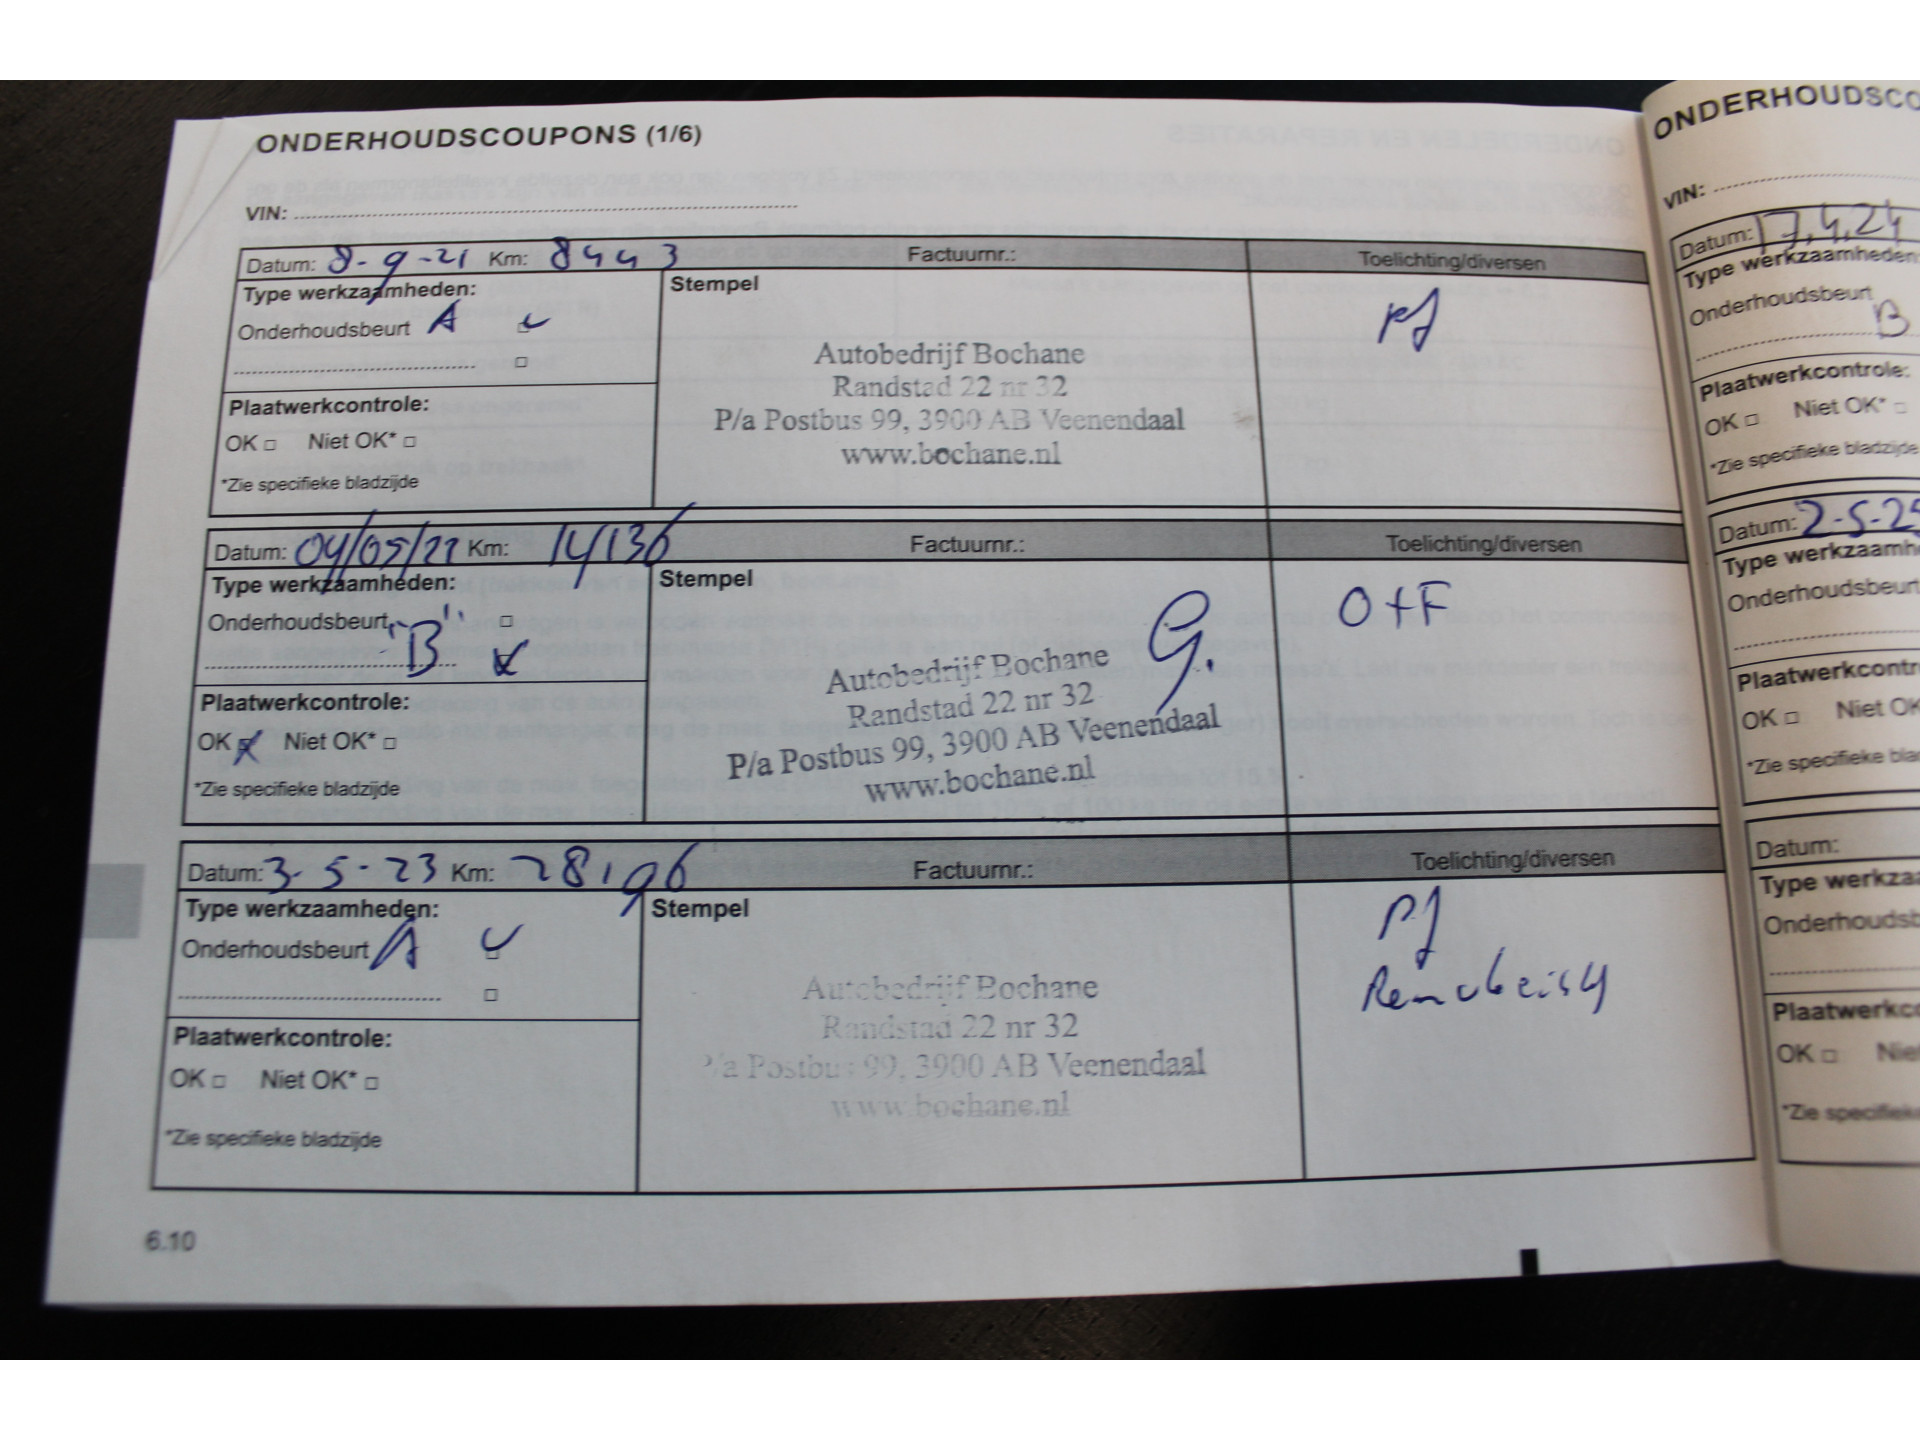 ONDERHOUDSCOUPONS (1/6)
VIN:
Datum: 8-9-21 Km: 8443 Factuurnr.: Toelichting/diversen
Type werkzaamheden: Stempel
Onderhoudsbeurt A
Autobedrijf Bochane
Randstad 22 nr 32
P/a Postbus 99, 3900 AB Veenendaal
www.bochane.nl
Plaatwerkcontrole:
OK □ Niet OK* □
*Zie specifieke bladzijde
Datum: 04/05/22 Km: 14136 Factuurnr.: Toelichting/diversen
Type werkzaamheden: Stempel
Onderhoudsbeurt "B"
O+F
Autobedrijf Bochane
Randstad 22 nr 32
P/a Postbus 99, 3900 AB Veenendaal
www.bochane.nl
Plaatwerkcontrole:
OK Niet OK* □
*Zie specifieke bladzijde
Datum: 3-5-23 Km: 28196 Factuurnr.: Toelichting/diversen
Type werkzaamheden: Stempel
Onderhoudsbeurt A
Autobedrijf Bochane
Randstad 22 nr 32
P/a Postbus 99, 3900 AB Veenendaal
www.bochane.nl
Plaatwerkcontrole:
OK □ Niet OK* □
*Zie specifieke bladzijde
6.10
ONDERHOUDSCO
VIN:
Datum: 17,4,24
Type werkzaamheden
Onderhoudsbeurt
B
Plaatwerkcontrole:
OK □ Niet OK* □
*Zie specifieke bladzijde
Datum: 2-5-25
Type werkzaamh
Onderhoudsbeurt
Plaatwerkcontr
OK □ Niet OK
*Zie specifieke bla
Datum:
Type werkza
Onderhoudsb
Plaatwerkco
OK □ Nie
*Zie specifiek